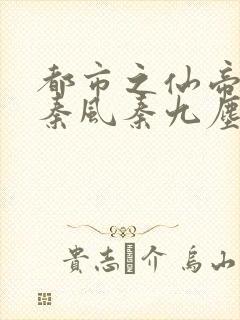 都市之仙帝
秦风秦九塵
貴志 介 烏山